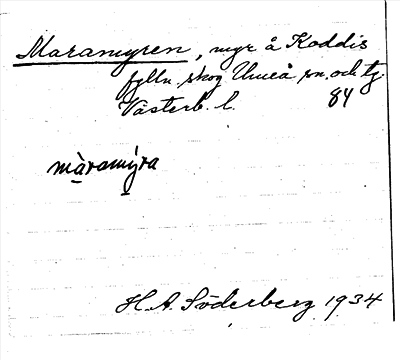 Maramyren, myr å Koddis
fjälln. skog Umeå sn. och tg.
Västerb. l. 84
màramýra
H.A. Söderberg 1934